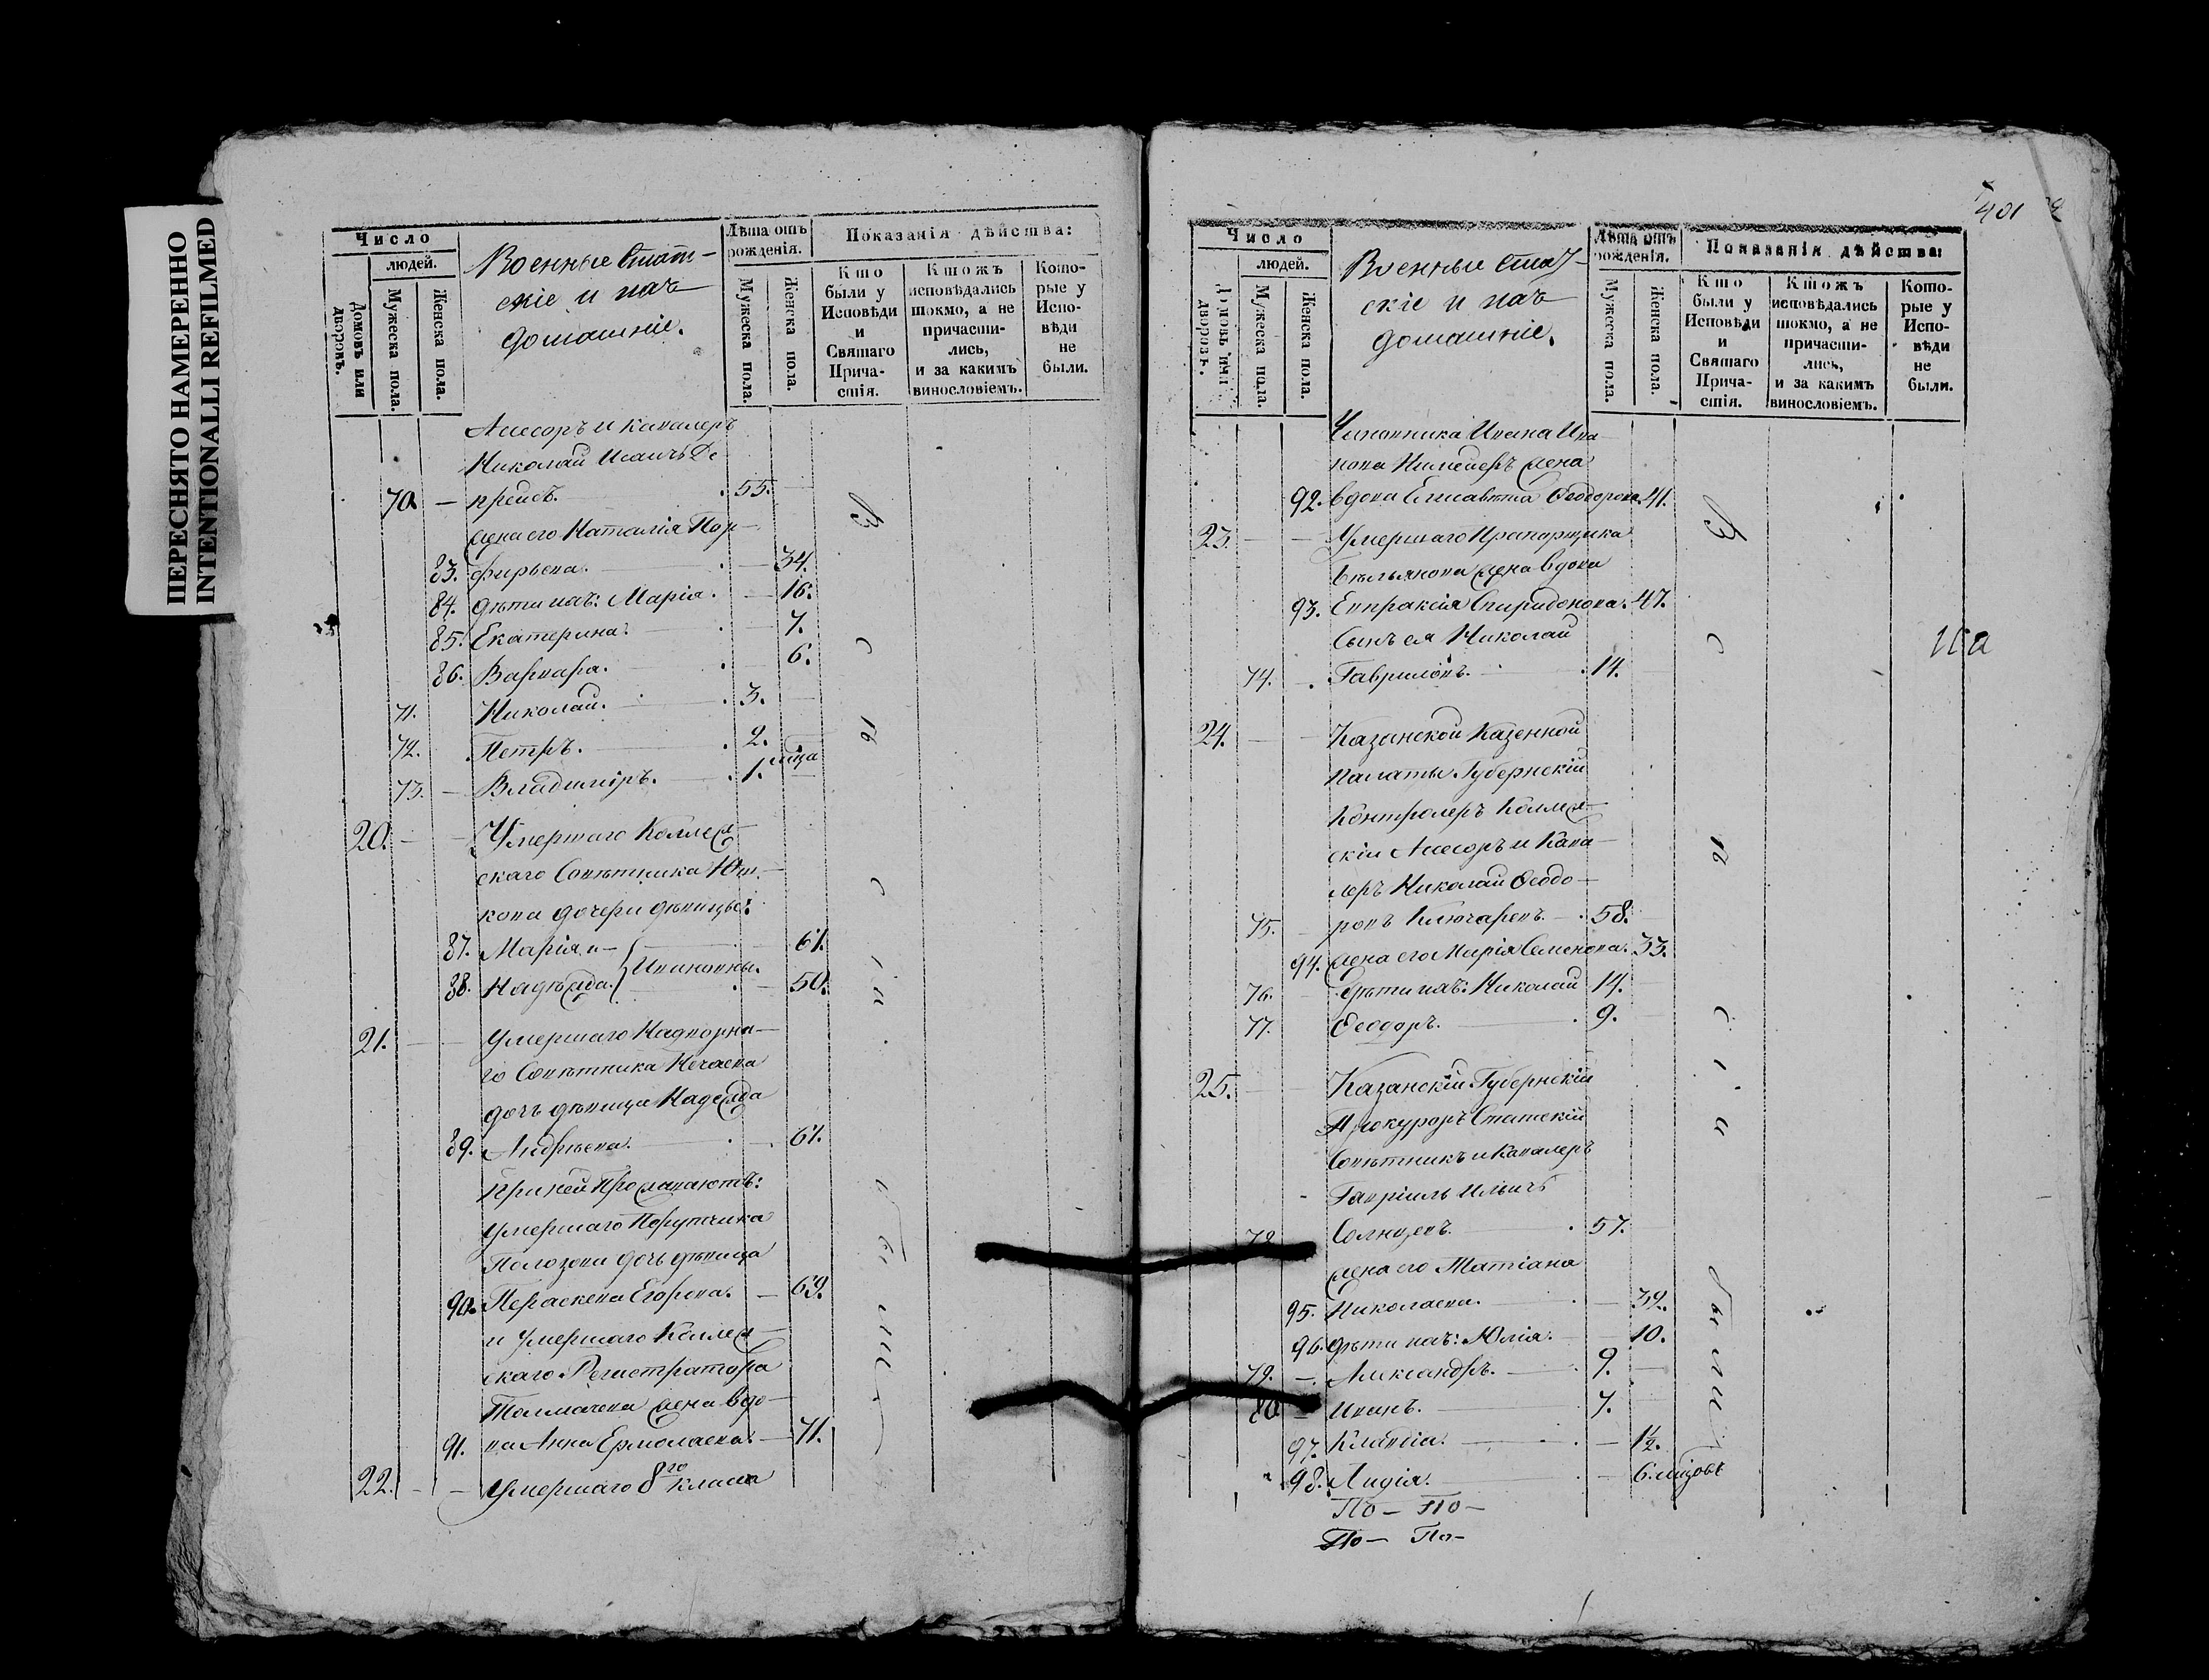 ПЕРЕСНЯТО НАМЕРЕННО
INTENTIONALLI REFILMED
Число
людей.
Домовъ или дворовъ.
Мужеска пола.
Женска пола.
Военные Стат-
скіе и ихъ
домашніе.
Лѣта отъ рожденія.
Мужеска пола.
Женска пола.
Показанія дѣйства:
Кто были у Исповѣди и Святаго Прича-стія.
Ктожъ исповѣдались токмо, а не причасти-лись, и за какимъ винословіемъ.
Кото-рые у Испо-вѣди не были.
Ассесоръ и кавалеръ
Николай Исаичъ Де
70. — прейсъ. 55.
жена его Наталія Пор-
83. фирьева. — 34.
84. дѣти ихъ: Марія. — 16.
85. Екатерина. — 7.
86. Варвара. — 6.
71. Николай. 3.
72. Петръ. 2.
73. — Владиміръ. 1. мца
20. — — Умершаго Коллеж-
скаго Совѣтника Юш-
кова дочери дѣвицы:
87. Марія и — 61.
88. Надѣжда. Ивановны. — 50.
21. — — Умершаго Надворна-
го Совѣтника Нечаева
дочь дѣвица Надежда
89. Андрѣева. — 61.
При ней Проживаютъ:
умершаго Порутчика
Полозова дочь дѣвица
90. Параскева Егорева. — 69.
и умершаго Коллеж-
скаго Регистратора
Толмачева жена вдо-
91. ва Анна Ермолаева. — 71.
22. — — умершаго 8го класса
В
с
ѣ
с
і
и
б
ы
л
и
401
Число
людей.
Домовъ или дворовъ.
Мужеска пола.
Женска пола.
Военные Стат-
скіе и ихъ
домашніе.
Лѣта отъ рожденія.
Мужеска пола.
Женска пола.
Показанія дѣйства:
Кто были у Исповѣди и Святаго Прича-стія.
Ктожъ исповѣдались токмо, а не причасти-лись, и за какимъ винословіемъ.
Кото-рые у Испо-вѣди не были.
Чиновника Ивана Ива
нова жена
92. вдова Елисавета Ѳеодорова. 41.
23. — — Умершаго Прапорщика
жена вдова
93. Евпраксія Спиридонова. 47.
Сынъ ея Николай
74. Гавриловъ. 14.
24. — — Казанской Казенной
Палаты Губернскій
Контролеръ Коллеж-
скій Ассесоръ и Кава-
леръ Николай Ѳеодо-
75. ровъ Ключаревъ. 58.
94. жена его Марія Семенова. 33.
76. — Дѣти ихъ: Николай 14.
77. Ѳеодоръ. 9.
25. — — Казанскій Губернскій
Прокуроръ Статскій
Совѣтникъ и Кавалеръ
Гавріилъ Ильичъ
78. Солнцевъ. 57.
жена его Татіана
95. Николаева. — 32.
96. дѣти ихъ: Юлія. — 10.
79. — Александръ. 9. —
80 — Иванъ. 7.
97. Клавдія. — 1½.
98. Лидія. — 6. мцовъ
По — По —
По — По —
В
с
ѣ
с
і
и
б
ы
л
и